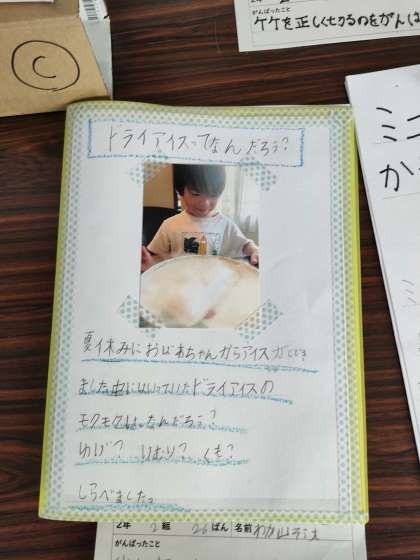 がんばったこと
ケケを正しくセクるのをがんば
C
ミニ
か
ドライアイスってなんだろう?
夏休みにおばあちゃんからアイスがとどき
ました中にはいっていたドライアイスの
モクモクはなんだろう?
ゆげ? けむり? くも?
しらべました。
2年 2組 26ばん 名前
がんばったこと